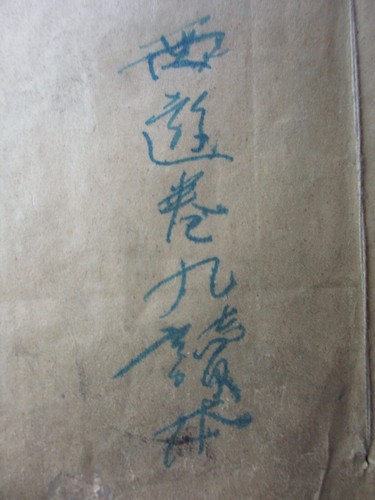 西遊卷九讀本